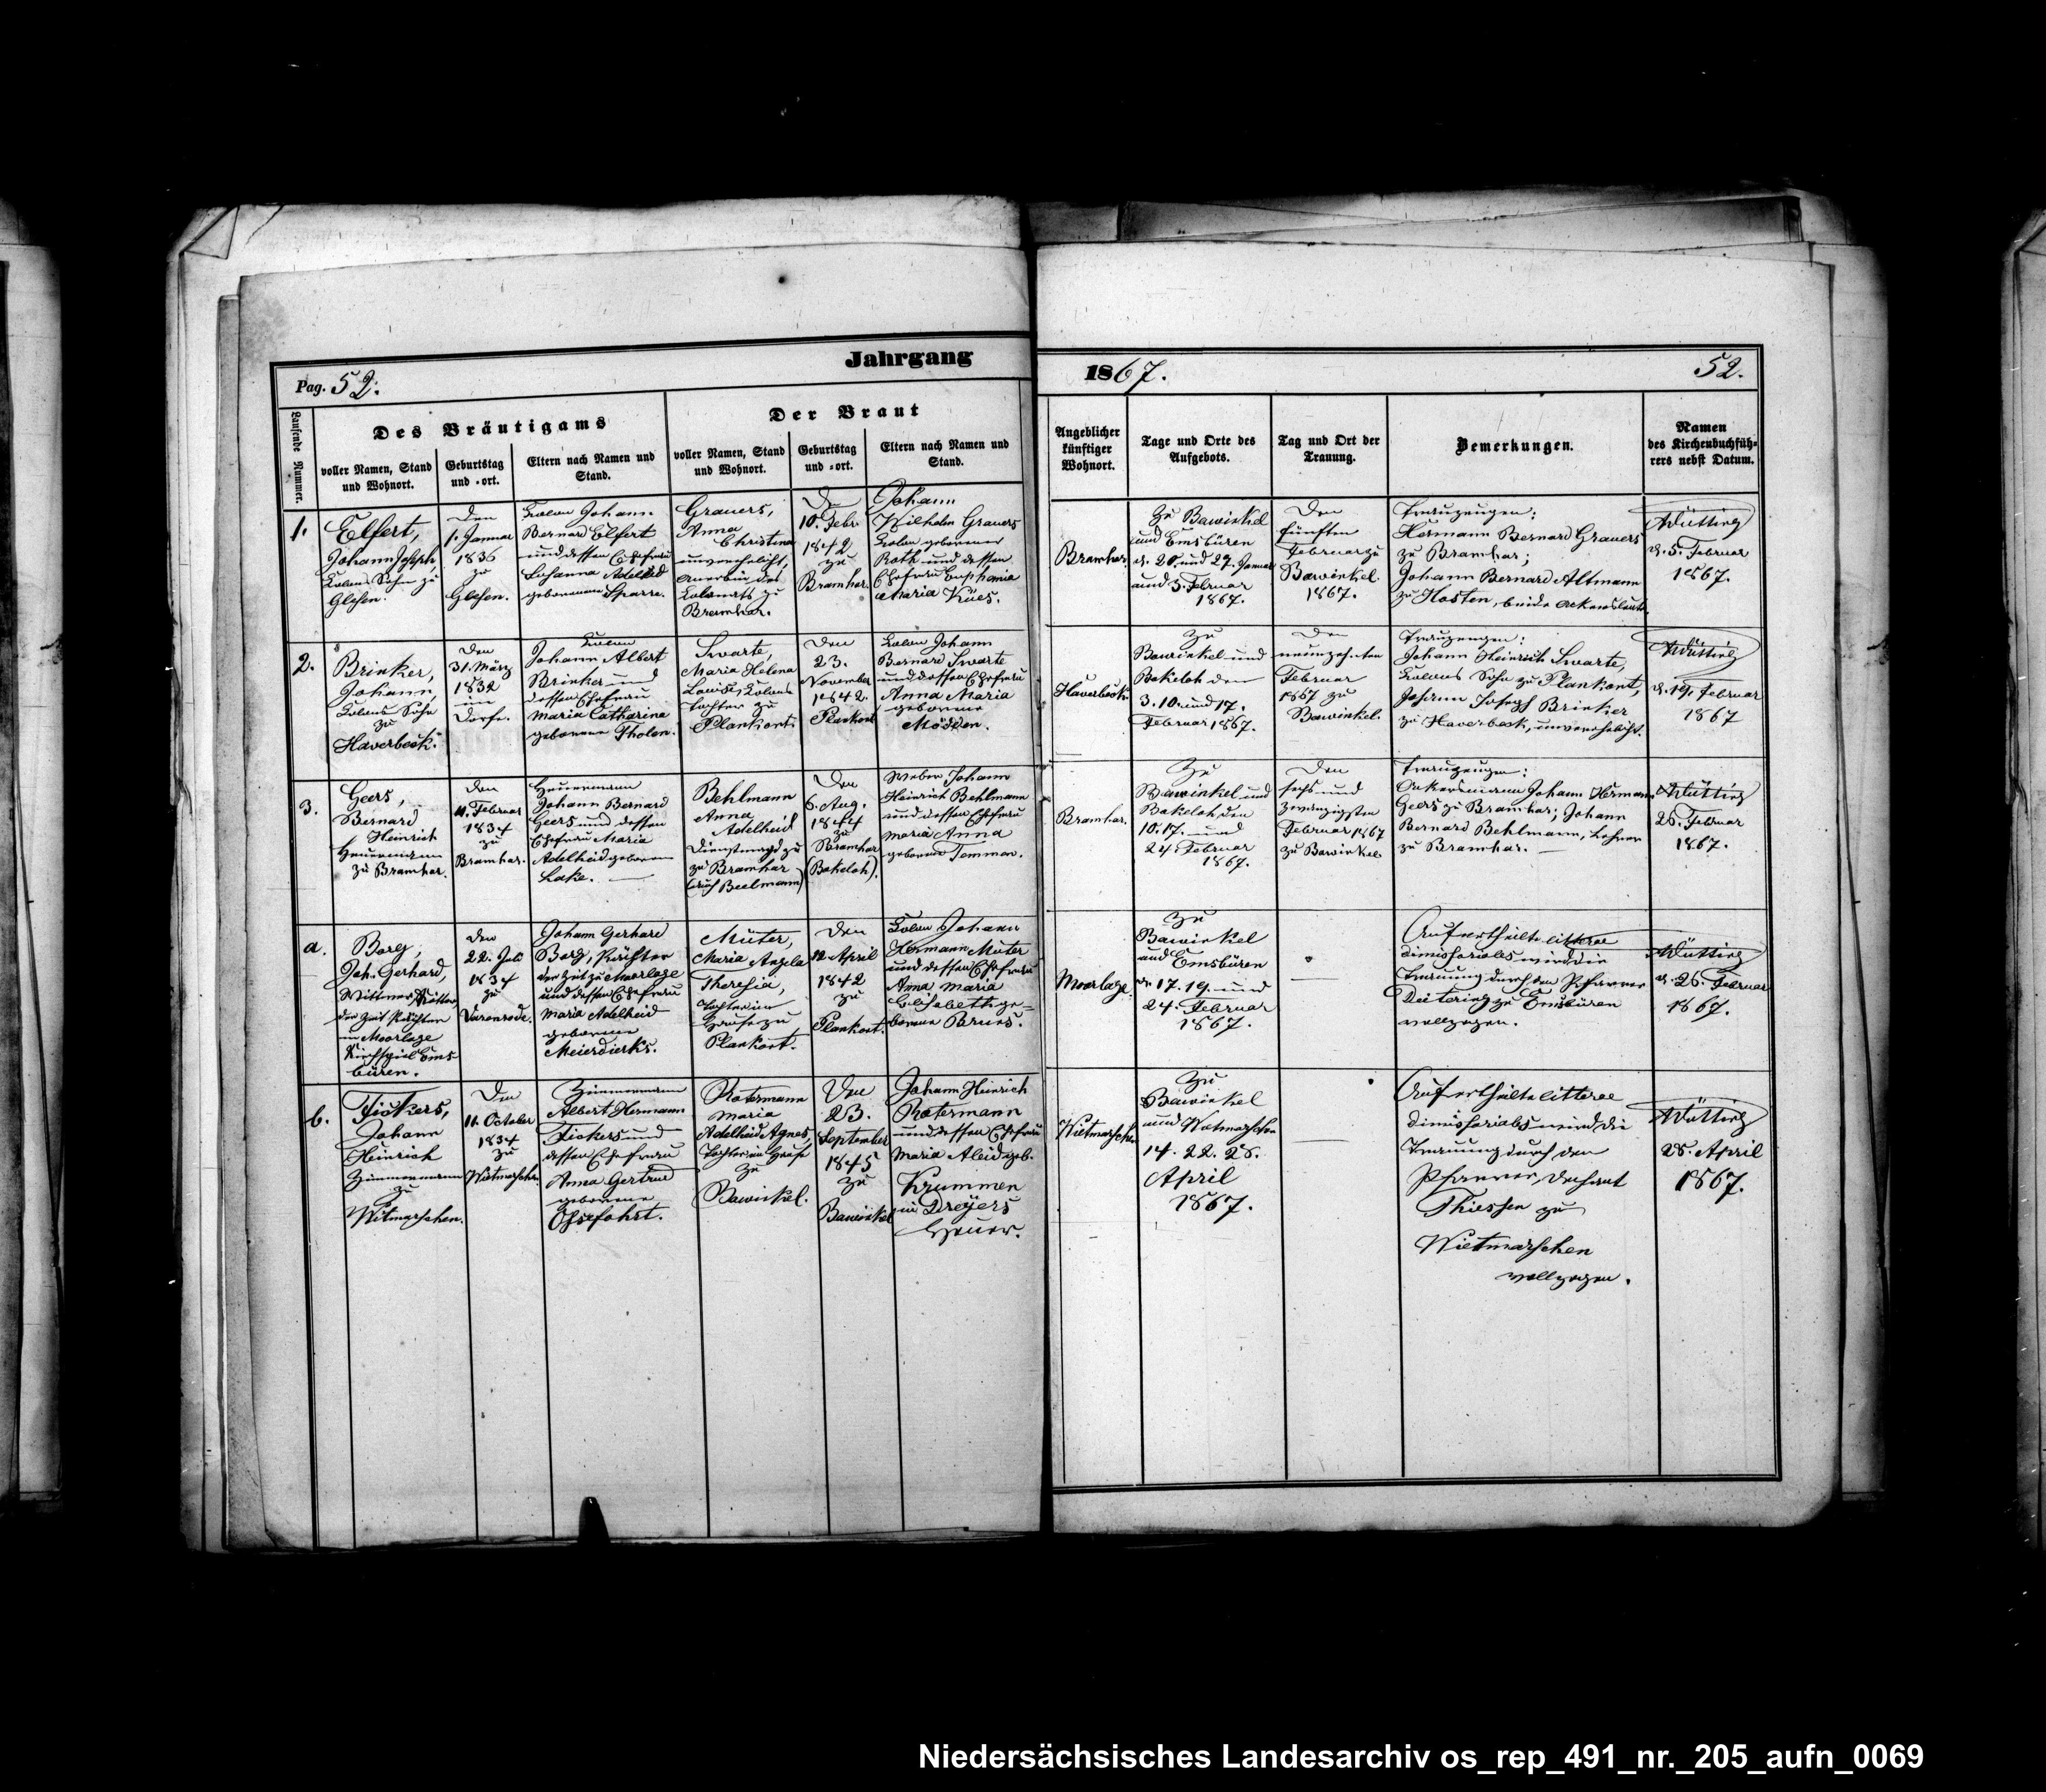 Jahrgang
1867.
Pag. 52.
52.
Laufende Nummer.
Des Bräutigams
voller Namen, Stand
und Wohnort.
Geburtstag
und -ort.
Eltern nach Namen und
Stand.
Der Braut
voller Namen, Stand
und Wohnort.
Geburtstag
und -ort.
Eltern nach Namen und
Stand.
Angeblicher
künftiger
Wohnort.
Tage und Orte des
Aufgebots.
Tag und Ort der
Trauung.
Bemerkungen.
Namen
des Kirchenbuchfüh-
rers nebst Datum.
1.
Elfert,
Johann Joseph,
Colons Sohn zu
Glesen.
Den
1. Januar
1836
zu
Glesen.
Colon Johann
Bernard Elfert
und dessen Ehefrau
Susanna Adelheid
geborenen Sparre.
Grauers,
Anna
Christina
unverehelicht,
Anerbin des
Colonats zu
Bramhar.
Den
10. Febr
1842
zu
Bramhar.
Johann
Wilhelm Grauers
Colon geborener
Roth und dessen
Ehefrau Euphemia
Maria Kües.
Bramhar.
Zu Bawinkel
und Emsbüren
d. 20. und 27. Januar
und 3. Februar
1867.
Den
fünften
Februar zu
Bawinkel.
1867.
Trauzeugen:
Hermann Bernard Grauers
zu Bramhar;
Johann Bernard Altmann
zu Hosten, beide Ackersleute.
d. 5. Februar
1867.
2.
Brinker,
Johann,
Colons Sohn
zu
Haverbeck.
Den
31. März
1832
im
Dorfe.
Colon
Johann Albert
Brinker und
dessen Ehefrau
Maria Catharina
geborene Tholen.
Swarte,
Maria Helena
Louise, Colons
Tochter zu
Plankort.
Den
23.
November
1842
Plankort
Colon Johann
Bernard Swarte
und dessen Ehefrau
Anna Maria
geborene
Mödden.
Haverbeck.
Zu
Bawinkel und
Bokeloh den
3. 10. und 17.
Februar 1867.
Den
neunzehnten
Februar
1867 zu
Bawinkel.
Trauzeugen:
Johann Heinrich Swarte,
Colons Sohn zu Plankort,
Johann Joseph Brinker
zu Haverbeck, unverehelicht.
d. 19. Februar
1867
3.
Geers,
Bernard
Heinrich
Heuermann
zu Bramhar.
den
11. Februar
1834
zu
Bramhar.
Heuermann
Johann Bernard
Geers und dessen
Ehefrau Maria
Adelheid geborene
Lake.
Behlmann
Anna
Adelheid
Dienstmagd zu
zu Bramhar
(auch Beelmann)
Den
6. Aug.
1844
zu
Bramhar
(Bokeloh).
Weber Johann
Heinrich Behlmann
und dessen Ehefrau
Maria Anna
geborene Temmen.
Bramhar.
Zu
Bawinkel und
Bokeloh den
10. 17. und
24. Februar
1867.
Den
sechs und
zwanzigsten
Februar 1867
zu Bawinkel
Trauzeugen:
Ackersmann Johann Hermann
Geers zu Bramhar; Johann
Bernard Behlmann, Lehrer
zu Bramhar.
26. Februar
1867.
a.
Borg,
Joh. Gerhard,
Wittwer, Kötter,
der Zeit Pächter
in Moorlage
Kirchspiel Ems-
büren.
den
22. Juli
1834
zu
Varenrode.
Johann Gerhard
Borg, Pächter
der Zeit zu Moorlage
und dessen Ehefrau
Maria Adelheid
geborene
Meierdierks.
Müter,
Maria Angela
Theresia,
Tochter im
Hause zu
Plankort.
Den
12. April
1842
zu
Plankort.
Colon Johann
Hermann Müter
und dessen Ehefrau
Anna Maria
Elisabeth ge-
borene Bruns.
Moorlage.
Zu
Bawinkel
und Emsbüren
d. 17. 19. und
24. Februar
1867.
Auf ertheilte litterae
dimissoriales wird die
Trauung durch den Pfarrer
Deitering zu Emsbüren
vollzogen.
d. 26. Februar
1867.
b.
Fickers,
Johann
Heinrich
Zimmermann
zu
Witmarschen.
Den
11. October
1834
zu
Wietmarschen.
Zimmermann
Albert Hermann
Fickers und
dessen Ehefrau
Anna Gertrud
geborene
Rotermann
Maria
Adelheid Agnes,
Tochter im Hause
zu
Bawinkel.
Den
23.
September
1845
zu
Bawinkel
Johann Heinrich
Rotermann
und dessen Ehefrau
Maria Aleid geb.
Krummen
in Dreyers
Heuer.
Wietmarschen
Zu
Bawinkel
und Wietmarschen
14. 22. 28.
April
1867.
Auf ertheilte litterae
dimissoriales wird die
Trauung durch den
Pfarrer, Dechant
Thiessen zu
Wietmarschen
vollzogen.
28. April
1867.
Niedersächsisches Landesarchiv os_rep_491_nr._205_aufn_0069